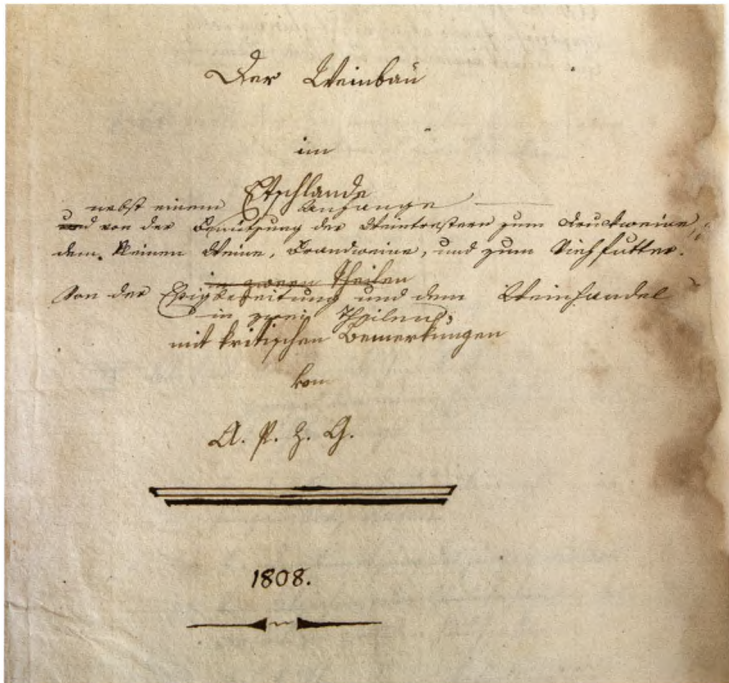 Der Weinbau
im
Etschlande
nebst einem Anhange
und von der Benützung der Weintrestern zum Druckweine,
dem kleinen Weine, Brandweine, und zum Viehfutter.
in zween Theilen
Von der Essigbereitung und dem Weinhandel
in zwei Theilen,
mit kritischen Bemerkungen
von
A. P. z. G.
1808.